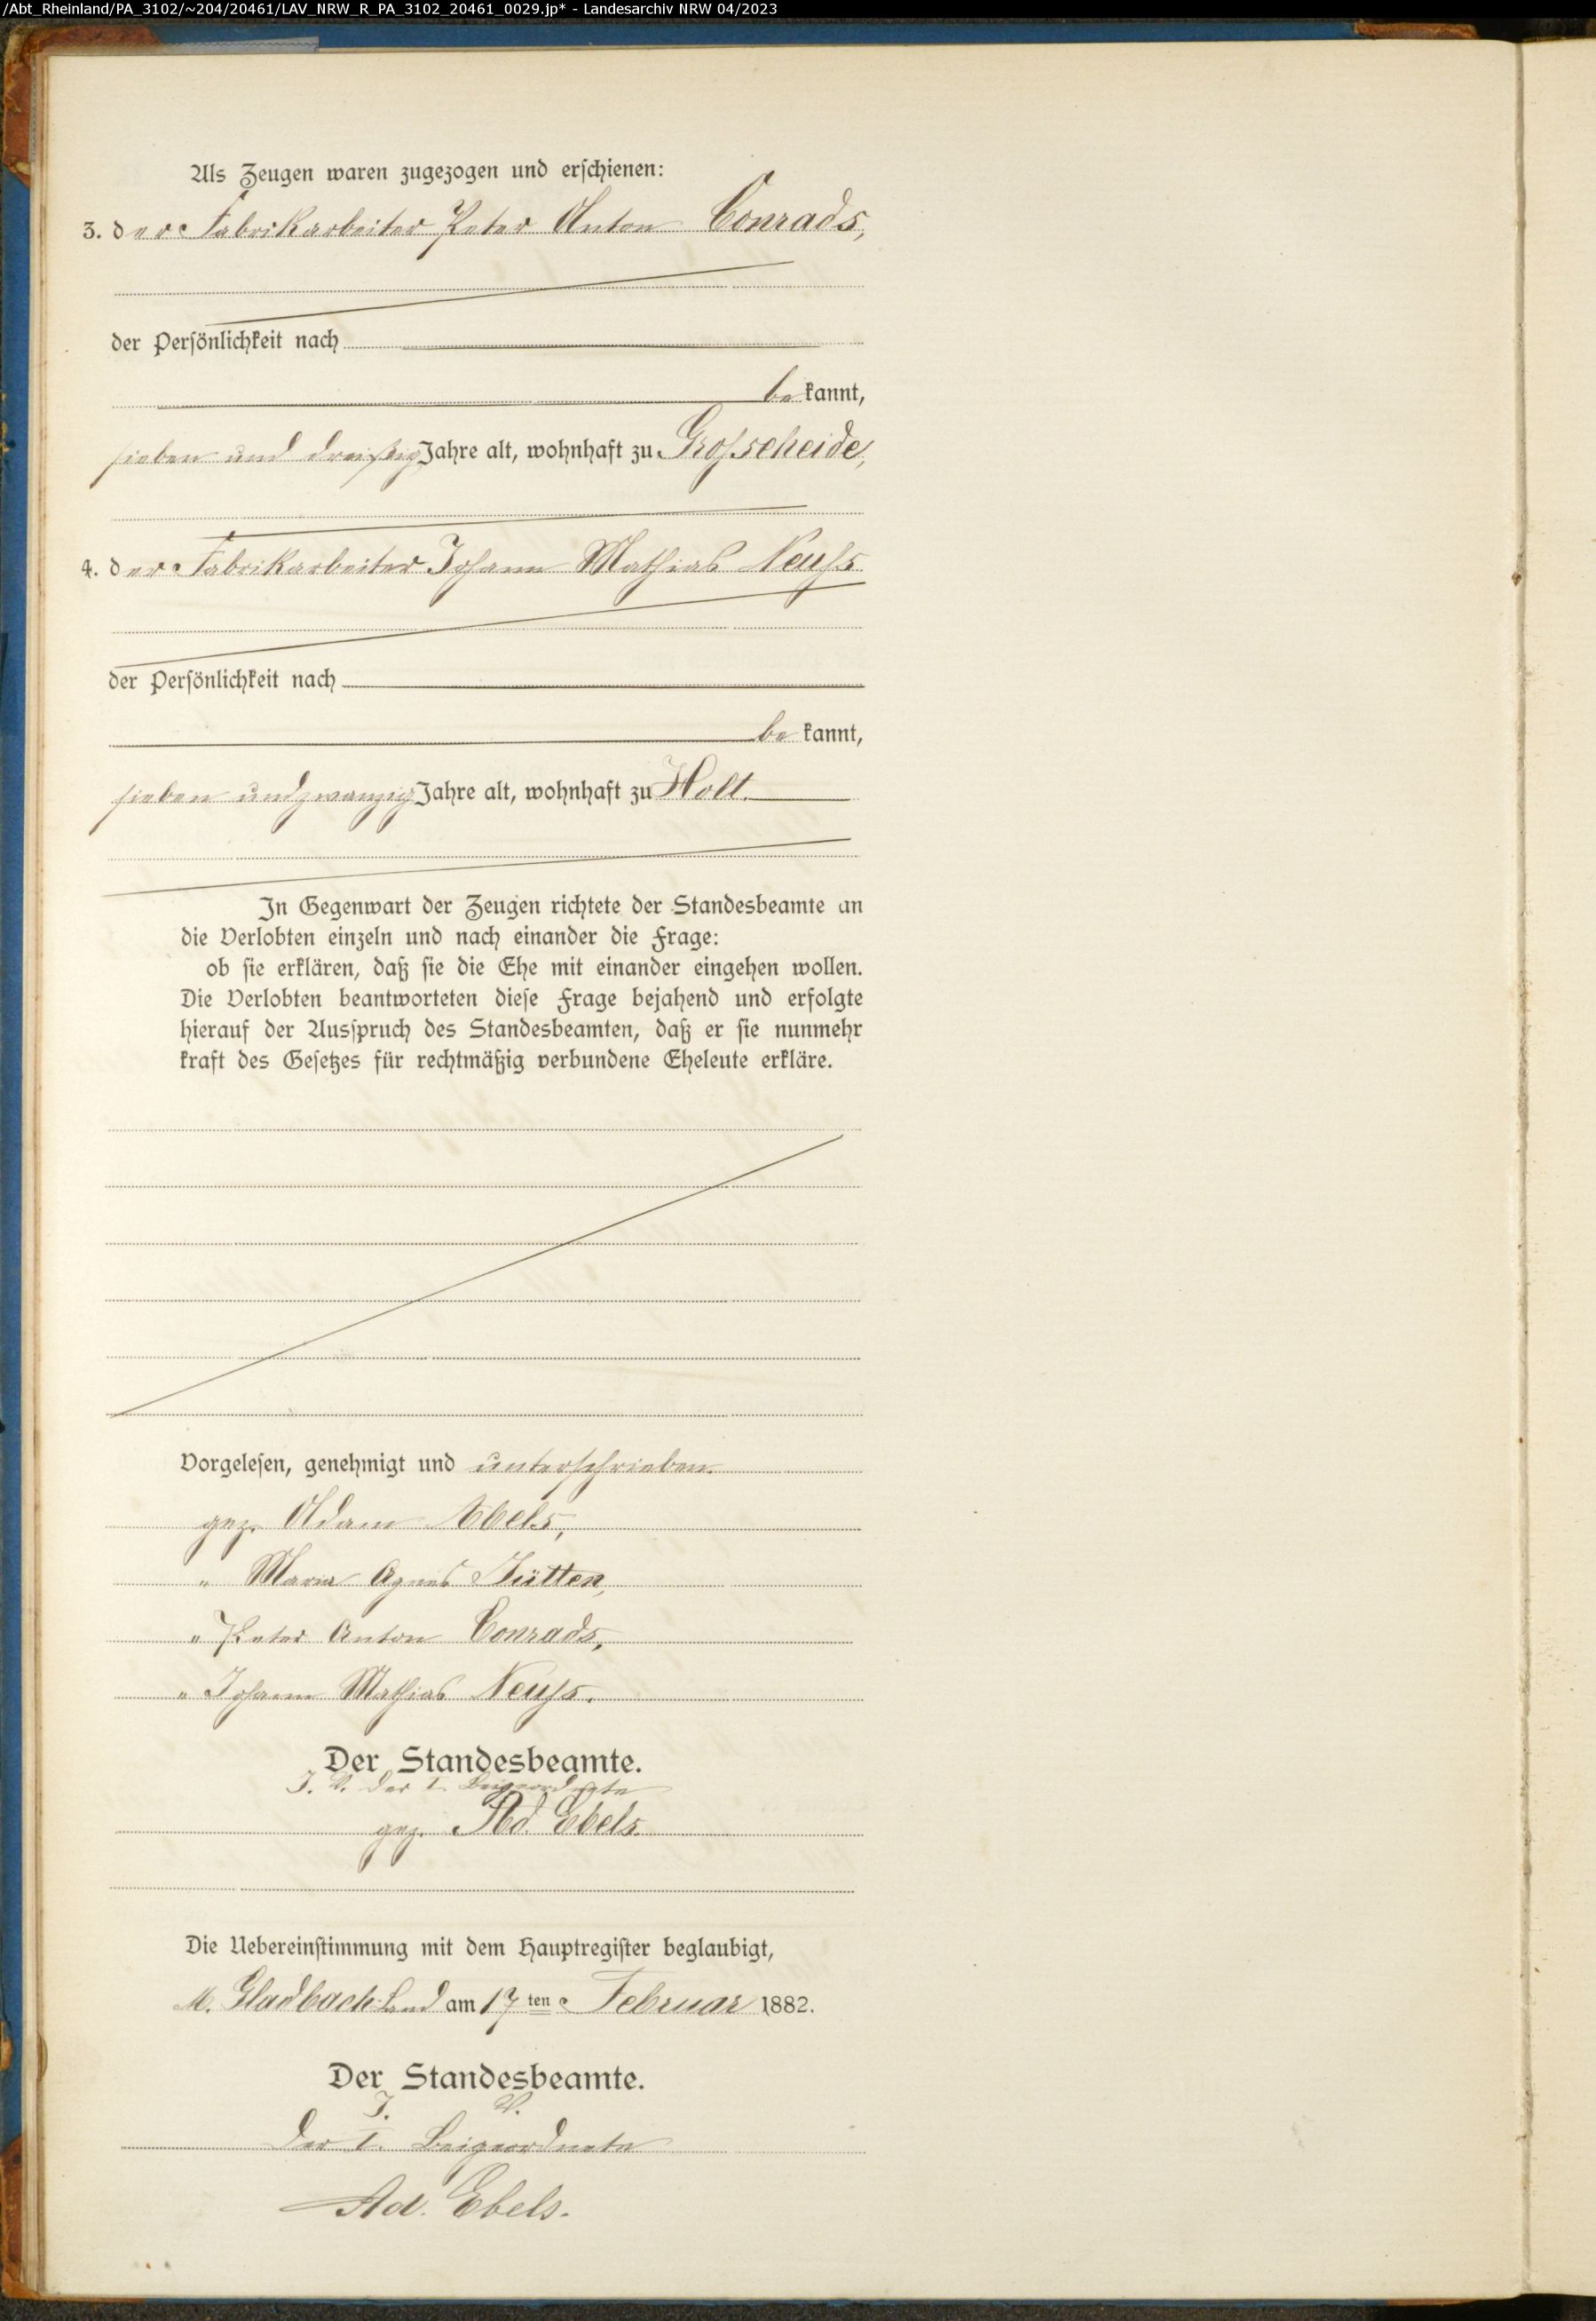 /Abt_Rheinland/PA_3102/~204/20461/LAV_NRW_R_PA_3102_20461_0029.jp* - Landesarchiv NRW 04/2023
Als Zeugen waren zugezogen und erschienen:
3. der Fabrikarbeiter Peter Anton Conrads,
der Persönlichkeit nach
be kannt,
sieben und dreißig Jahre alt, wohnhaft zu Grosscheide,
4. der Fabrikarbeiter Johann Mathias Neuss
der Persönlichkeit nach
be kannt,
sieben und zwanzig Jahre alt, wohnhaft zu Holt.
In Gegenwart der Zeugen richtete der Standesbeamte an
die Verlobten einzeln und nach einander die Frage:
ob sie erklären, daß sie die Ehe mit einander eingehen wollen.
Die Verlobten beantworteten diese Frage bejahend und erfolgte
hierauf der Ausspruch des Standesbeamten, daß er sie nunmehr
kraft des Gesetzes für rechtmäßig verbundene Eheleute erkläre.
Vorgelesen, genehmigt und unterschrieben.
gez. Adam Abels,
" Maria Agnes Jütten,
" Peter Anton Conrads,
" Johann Mathias Neuss.
Der Standesbeamte.
J. V. der I. Beigeordnete
gez. Ad. Ebels.
Die Uebereinstimmung mit dem Hauptregister beglaubigt,
M. Gladbach Land am 17 ten Februar 1882.
Der Standesbeamte.
J. V.
Der I. Beigeordnete
Ad. Ebels.